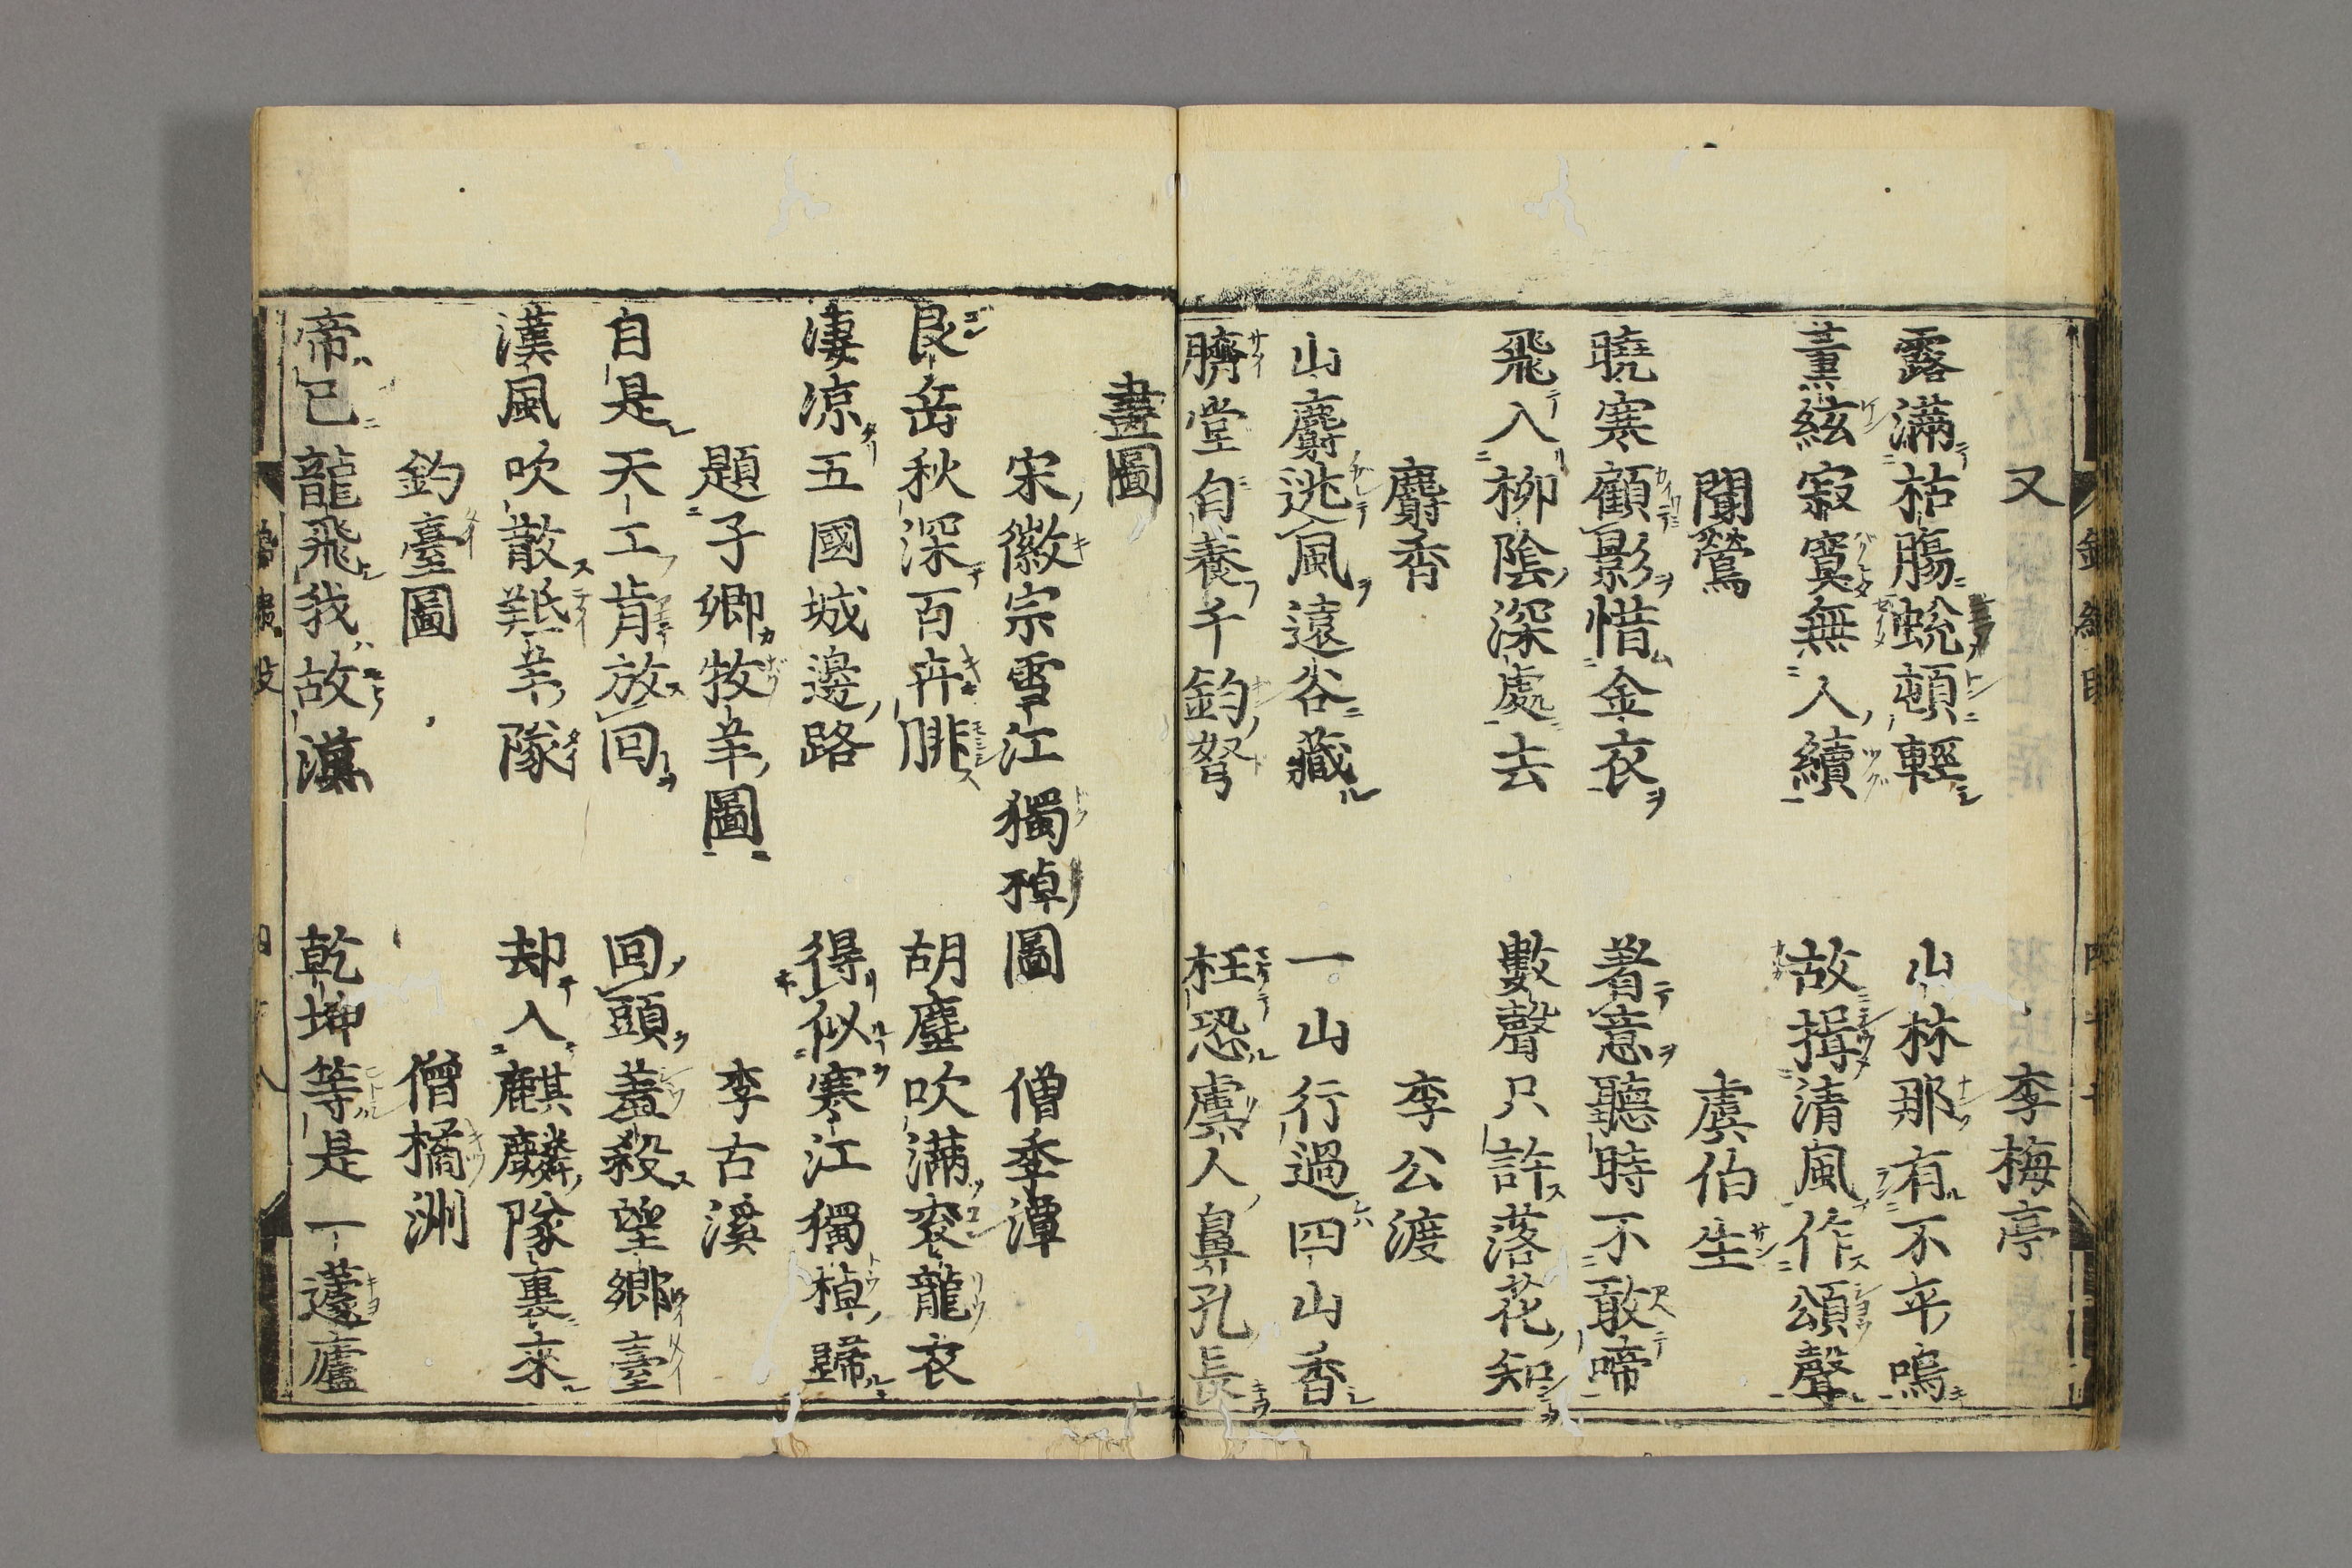 又　李梅亭
露滿枯腸蛻頓輕　山林那有不平鳴
薰絃寂寞無人續　故揖清風作頌聲
聞鶯　虞伯生
曉寒顧影惜金衣　著意聽時不敢啼
飛入柳陰深處去　數聲只許落花知
麝香　李公渡
山麝逃風遠谷藏　一山行過四山香
臍堂自養千鈞弩　枉恐虞人鼻孔長
畫圖
宋徽宗雪江獨棹圖　僧季潭
艮岳秋深百卉腓　胡塵吹滿袞龍衣
淒凉五國城邊路　得似寒江獨棹歸
題子卿牧羊圖　李古溪
自是天工肯放回　回頭羞殺望鄉臺
漢風吹散羝羊隊　却入麒麟隊裏來
釣臺圖　僧橘洲
帝已龍飛我故漢　乾坤等是一蘧廬